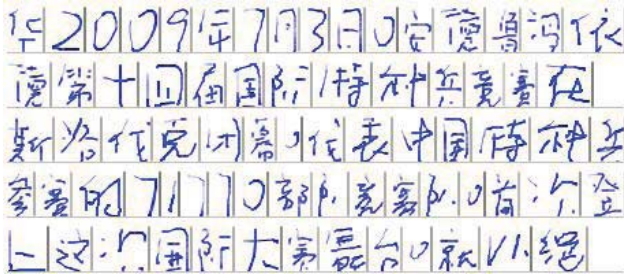 华2009年7月3日，安德鲁冯依
德第十四届国际特种兵竞赛在
斯洛伐克闭幕，代表中国特种兵
参赛的71770部队竞赛队，首次登
上这次国际大赛台，就以绝